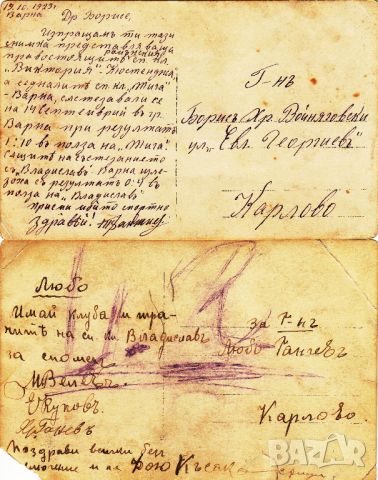 19.10.1929г.
Варна
Др. Борисе,
Изпращамъ ти тази
снимка представляваща
правостоящитѣ сп. кл.
"Виктория" Кюстенджа
а седналитѣ сп. кл. "Тича"
- Варна, състезавали се
на 14 септемврий въ гр.
Варна при резултатъ
1:10 въ полза на "Тича".
Същитѣ на състезанието
съ "Владиславъ" Варна излѣ-
зоха съ резултатъ 0:4 въ
полза на "Владиславъ".
Приеми мойтъ спортно
Здраввй!
Г-нъ
Борисъ Хр. Войняговски
ул. "Евл. Георгиевъ"
Карлово
Любо
Имай клуба и тра
нитѣ на сп. кл. Владиславъ
за спомен
М Велевъ
Е Куповъ
Поздрави всички без
и на
за Г-нъ
Любо Ганчевъ
Карлово
BAZAR